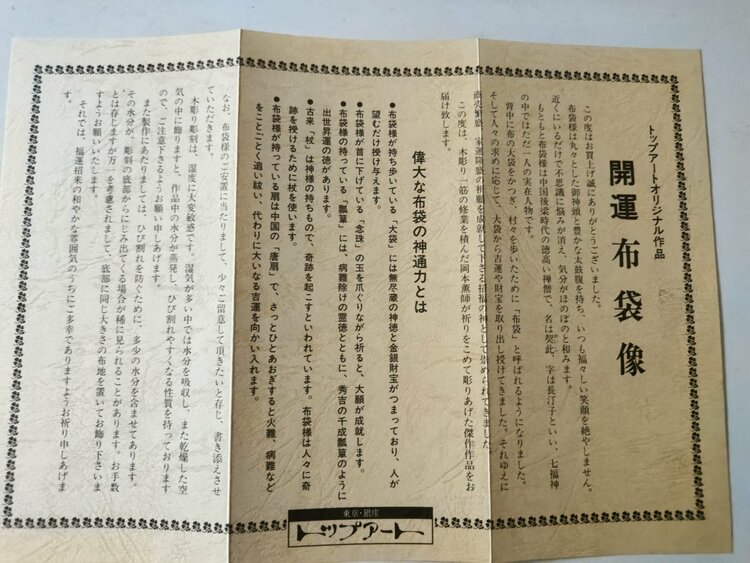 トップアートオリジナル作品
開運 布袋像
この度はお買上げ誠にありがとうございました。
布袋様は丸々とした御神頭と豊かな太鼓腹を持ち、いつも福々しい笑顔を絶やしません。
近くにいるだけで不思議に悩みが消え、気分がほのぼのと和みます。
もともと布袋様は中国後梁時代の徳高い禅僧で、名は契此、字は長汀子といい、七福神
の中ではただ一人の実在人物です。
背中に布の大袋をかつぎ、村々を歩いたために「布袋」と呼ばれるようになりました。
そして人々の求めに応じて、大袋から吉運や財宝を取り出し授けてきました。それゆえに
商売繁盛、家運隆盛の祈願を成就して下さる招福の神として崇められてきました。
この度は、木彫り一筋の修業を積んだ岡本薫師が祈りをこめて彫りあげた傑作作品をお
届け致します。
偉大な布袋の神通力とは
●布袋様が持ち歩いている「大袋」には無尽蔵の神徳と金銀財宝がつまっており、人が
望むだけ授け与えます。
●布袋様が首に下げている「念珠」の玉を爪ぐりながら祈ると、大願が成就します。
●布袋様の持っている「瓢箪」には、病難除けの霊徳とともに、秀吉の千成瓢箪のように
出世昇運の徳があります。
●古来「杖」は神様の持ちもので、奇跡を起こすといわれています。布袋様は人々に奇
跡を授けるために杖を使います。
●布袋様が持っている扇は中国の「唐扇」で、さっとひとあおぎすると火難、病難など
をことごとく追い祓い、代わりに大いなる吉運を向かい入れます。
なお、布袋様のご安置に当たりまして、少々ご留意して頂きたいと存じ、書き添えさせ
ていただきます。
木彫り彫刻は、湿度に大変敏感です。湿気が多い中では水分を吸収し、また乾燥した空
気の中に飾りますと、作品中の水分が蒸発し、ひび割れやすくなる性質を持っております
ので、ご注意下さるようお願い申しあげます。
また製作にあたりましては、ひび割れを防ぐために、多少の水分を含ませてあります。
その水分が、彫刻の底部からにじみ出てくる場合が稀に見られることがあります。お手数
とは存じますが万一を考慮されまして、底部に同じ大きさの布地を置いてお飾り下さいま
すようお願いいたします。
それでは、福運招来の和やかな雰囲気のうちにご多幸でありますようお祈り申しあげま
す。
東京・銀座
トップアート